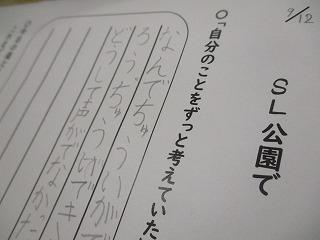 9/12
SL公園で
○「自分のことをずっと考えていた
なんでちゅういがで
ろう。ちゅういができ
どうして声がでなかった